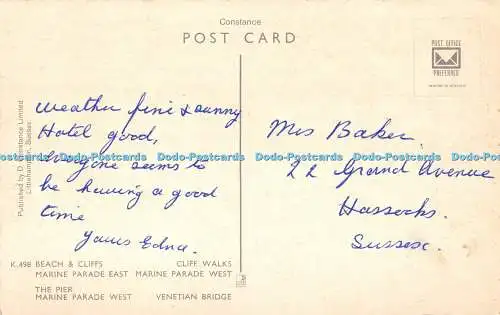 Constance
POST CARD
POST OFFICE
PREFERRED
weather fine & sunny
Hotel good,
everyone seems to
be having a good
time
Yours Edna.
Mrs Baker.
22 Grand Avenue
Hassocks.
Sussex.
Published by D. Constance Limited
Littlehampton, Sussex
K.498 BEACH & CLIFFS CLIFF WALKS
MARINE PARADE EAST MARINE PARADE WEST
THE PIER
MARINE PARADE WEST VENETIAN BRIDGE
Dodo-Postcards Dodo-Postcards Dodo-Postcards Dodo-Postcards Dodo-Postcards Dodo-Postcards